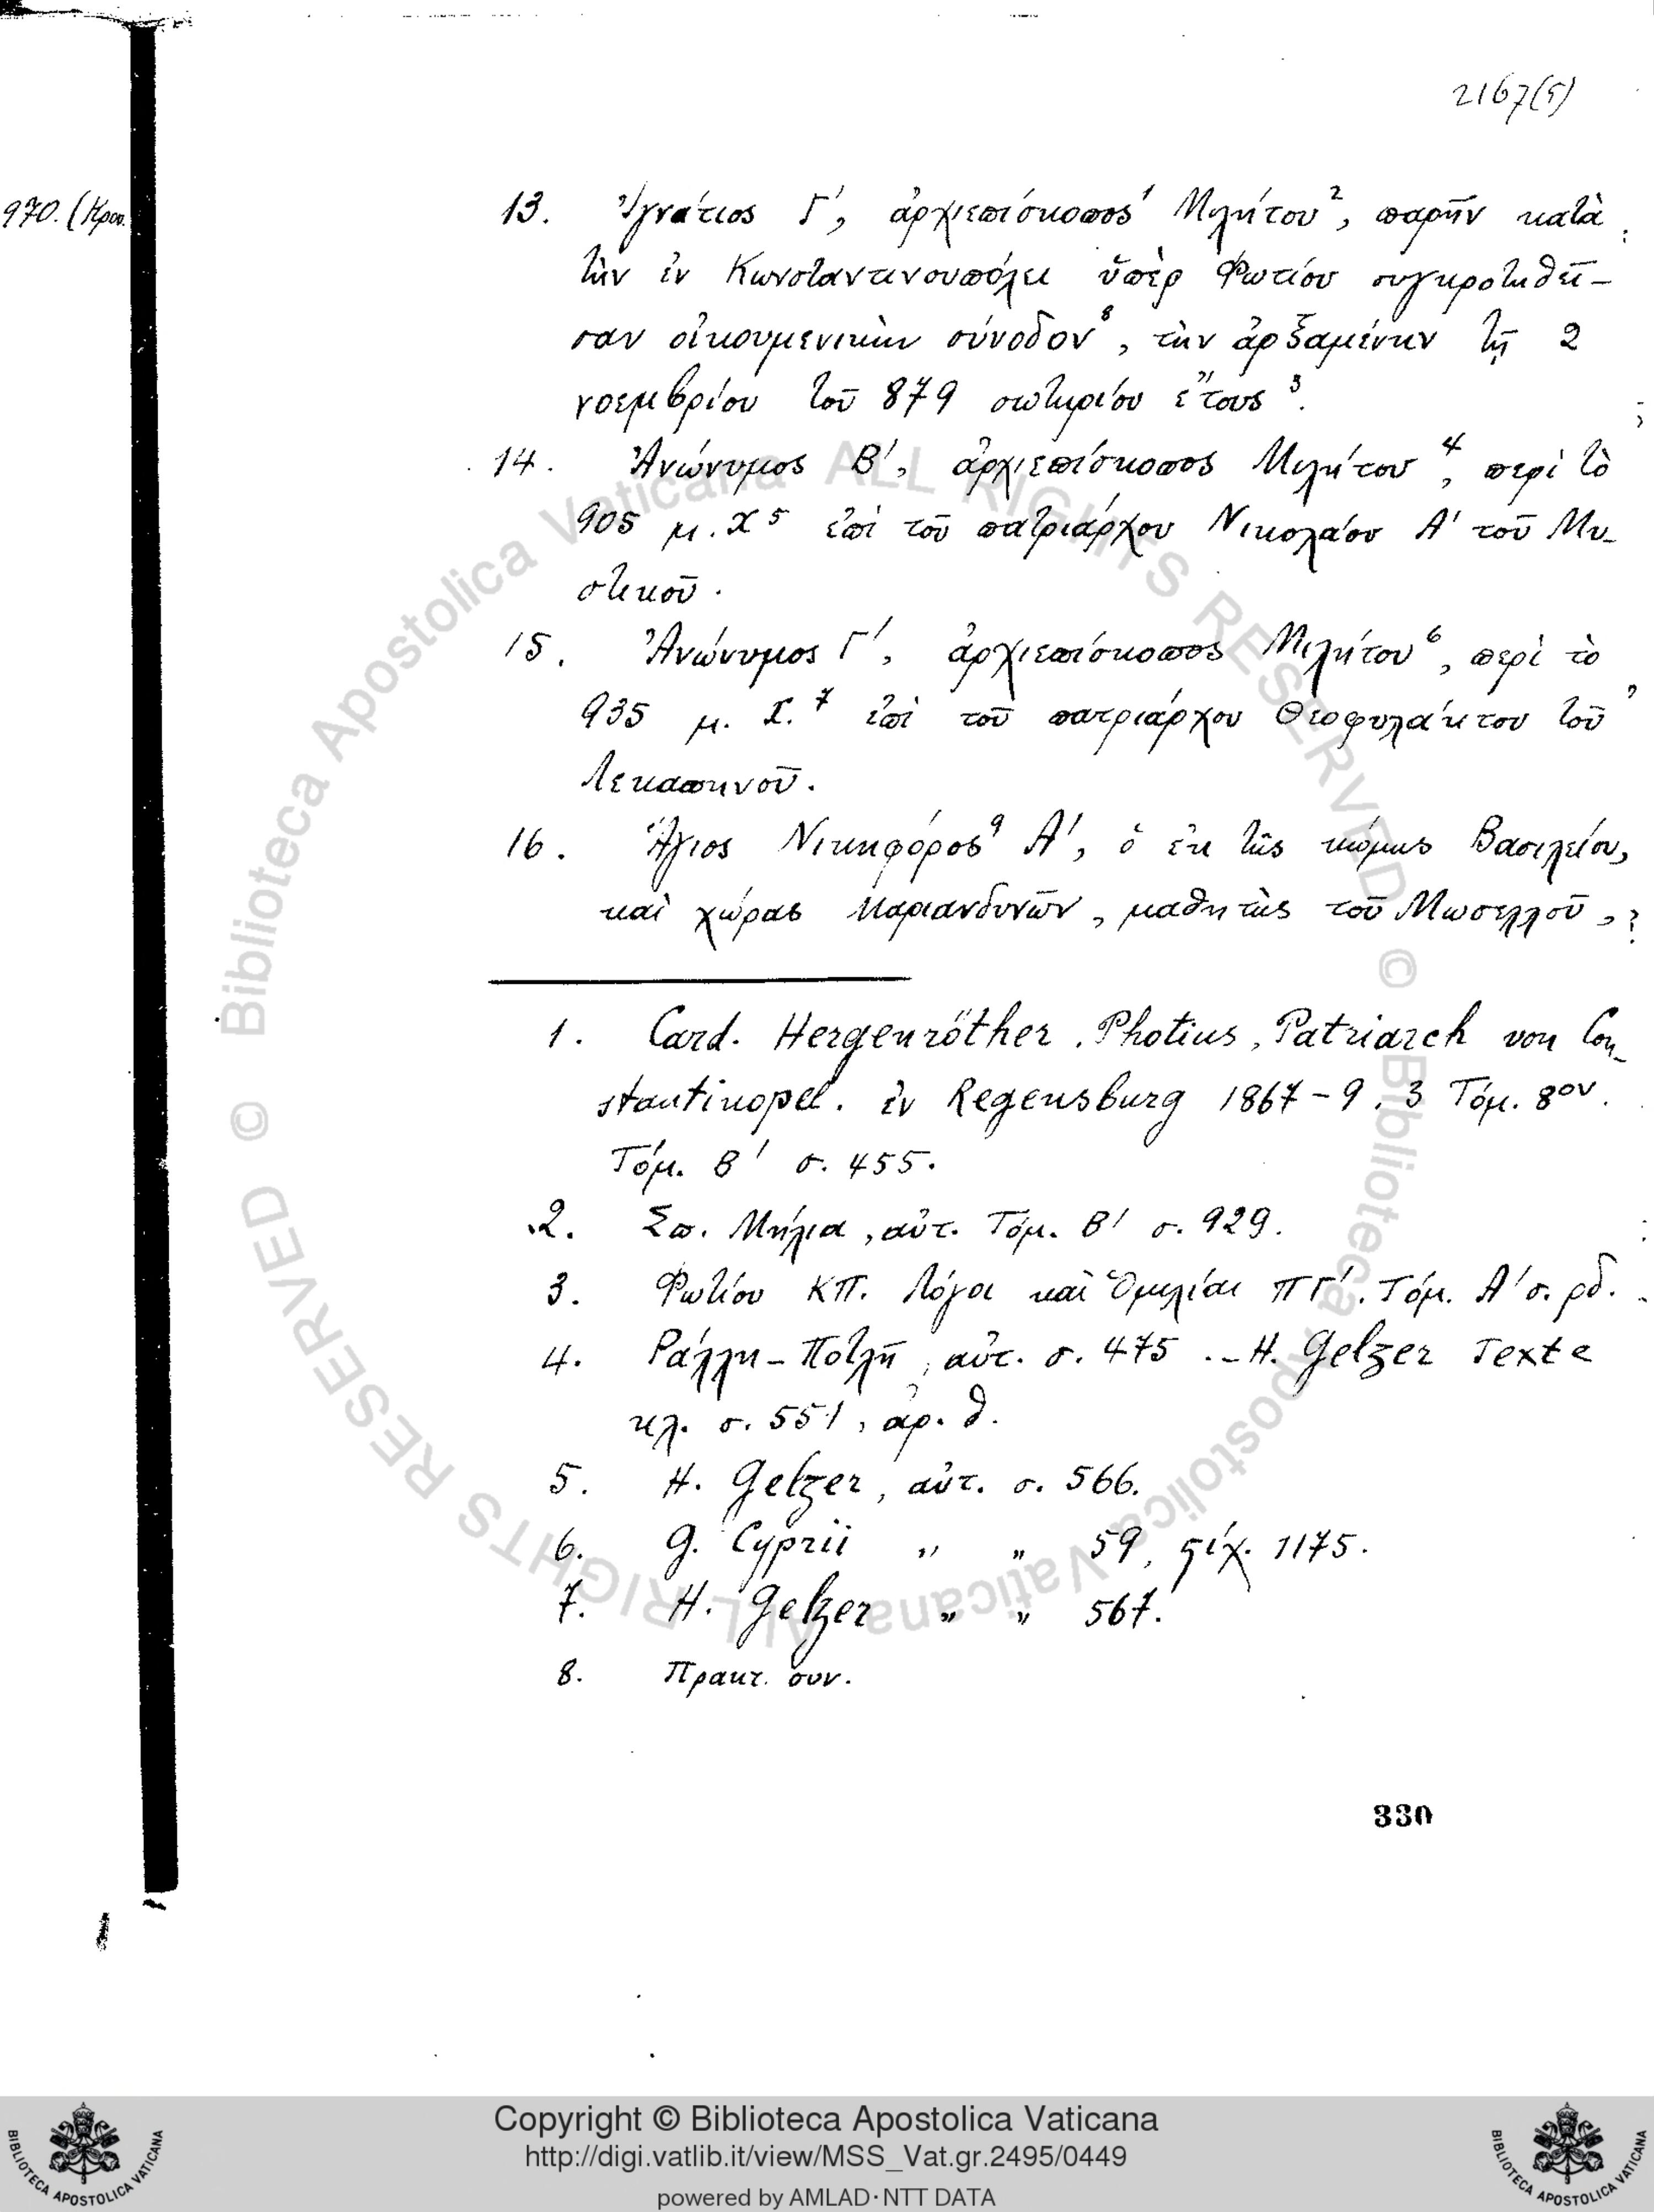 2167(5)
970. (Κρου.
13. Ἰγνάτιος Γ', ἀρχιεπίσκοπος¹ Μιλήτου², παρῆν κατὰ
τὴν ἐν Κωνσταντινουπόλει ὑπὲρ Φωτίου συγκροτηθεῖ-
σαν οἰκουμενικὴν σύνοδον⁸, τὴν ἀρξαμένην τῇ 2
νοεμβρίου τοῦ 879 σωτηρίου ἔτους³.
14. Ἀνώνυμος Β', ἀρχιεπίσκοπος Μιλήτου⁴, περὶ τὸ
905 μ. Χ⁵ ἐπὶ τοῦ πατριάρχου Νικολάου Α' τοῦ Μυ-
στικοῦ.
15. Ἀνώνυμος Γ', ἀρχιεπίσκοπος Μιλήτου⁶, περὶ τὸ
935 μ. Χ.⁷ ἐπὶ τοῦ πατριάρχου Θεοφυλάκτου τοῦ
Λεκαπηνοῦ.
16. Ἅγιος Νικηφόρος⁹ Α', ὁ ἐκ τῆς κώμης Βασιλείου,
καὶ χώρας Μαριανδυνῶν, μαθητὴς τοῦ Μωσελλοῦ,
1. Card. Hergenröther. Photius, Patriarch von Con-
stantinopel. ἐν Regensburg 1867-9. 3 Τόμ. 8ον.
Τόμ. Β' σ. 455.
2. Σπ. Μήλια, αὐτ. Τόμ. Β' σ. 929.
3. Φωτίου ΚΠ. Λόγοι καὶ Ὁμιλίαι ΠΓ'. Τόμ. Α' σ. ρδ.
4. Ράλλη-Ποτλῆ, αὐτ. σ. 475.- H. Gelzer Texte
κλ. σ. 551, ἀρ. θ.
5. H. Gelzer, αὐτ. σ. 566.
6. G. Cyprii " " 59, ςίχ. 1175.
7. H. Gelzer " " 567.
8. Πρακτ. συν.
330
© Biblioteca Apostolica Vaticana ALL RIGHTS RESERVED © Biblioteca Apostolica Vaticana ALL RIGHTS RESERVED
Copyright © Biblioteca Apostolica Vaticana
http://digi.vatlib.it/view/MSS_Vat.gr.2495/0449
powered by AMLAD·NTT DATA
BIBLIOTECA APOSTOLICA VATICANA
BIBLIOTECA APOSTOLICA VATICANA